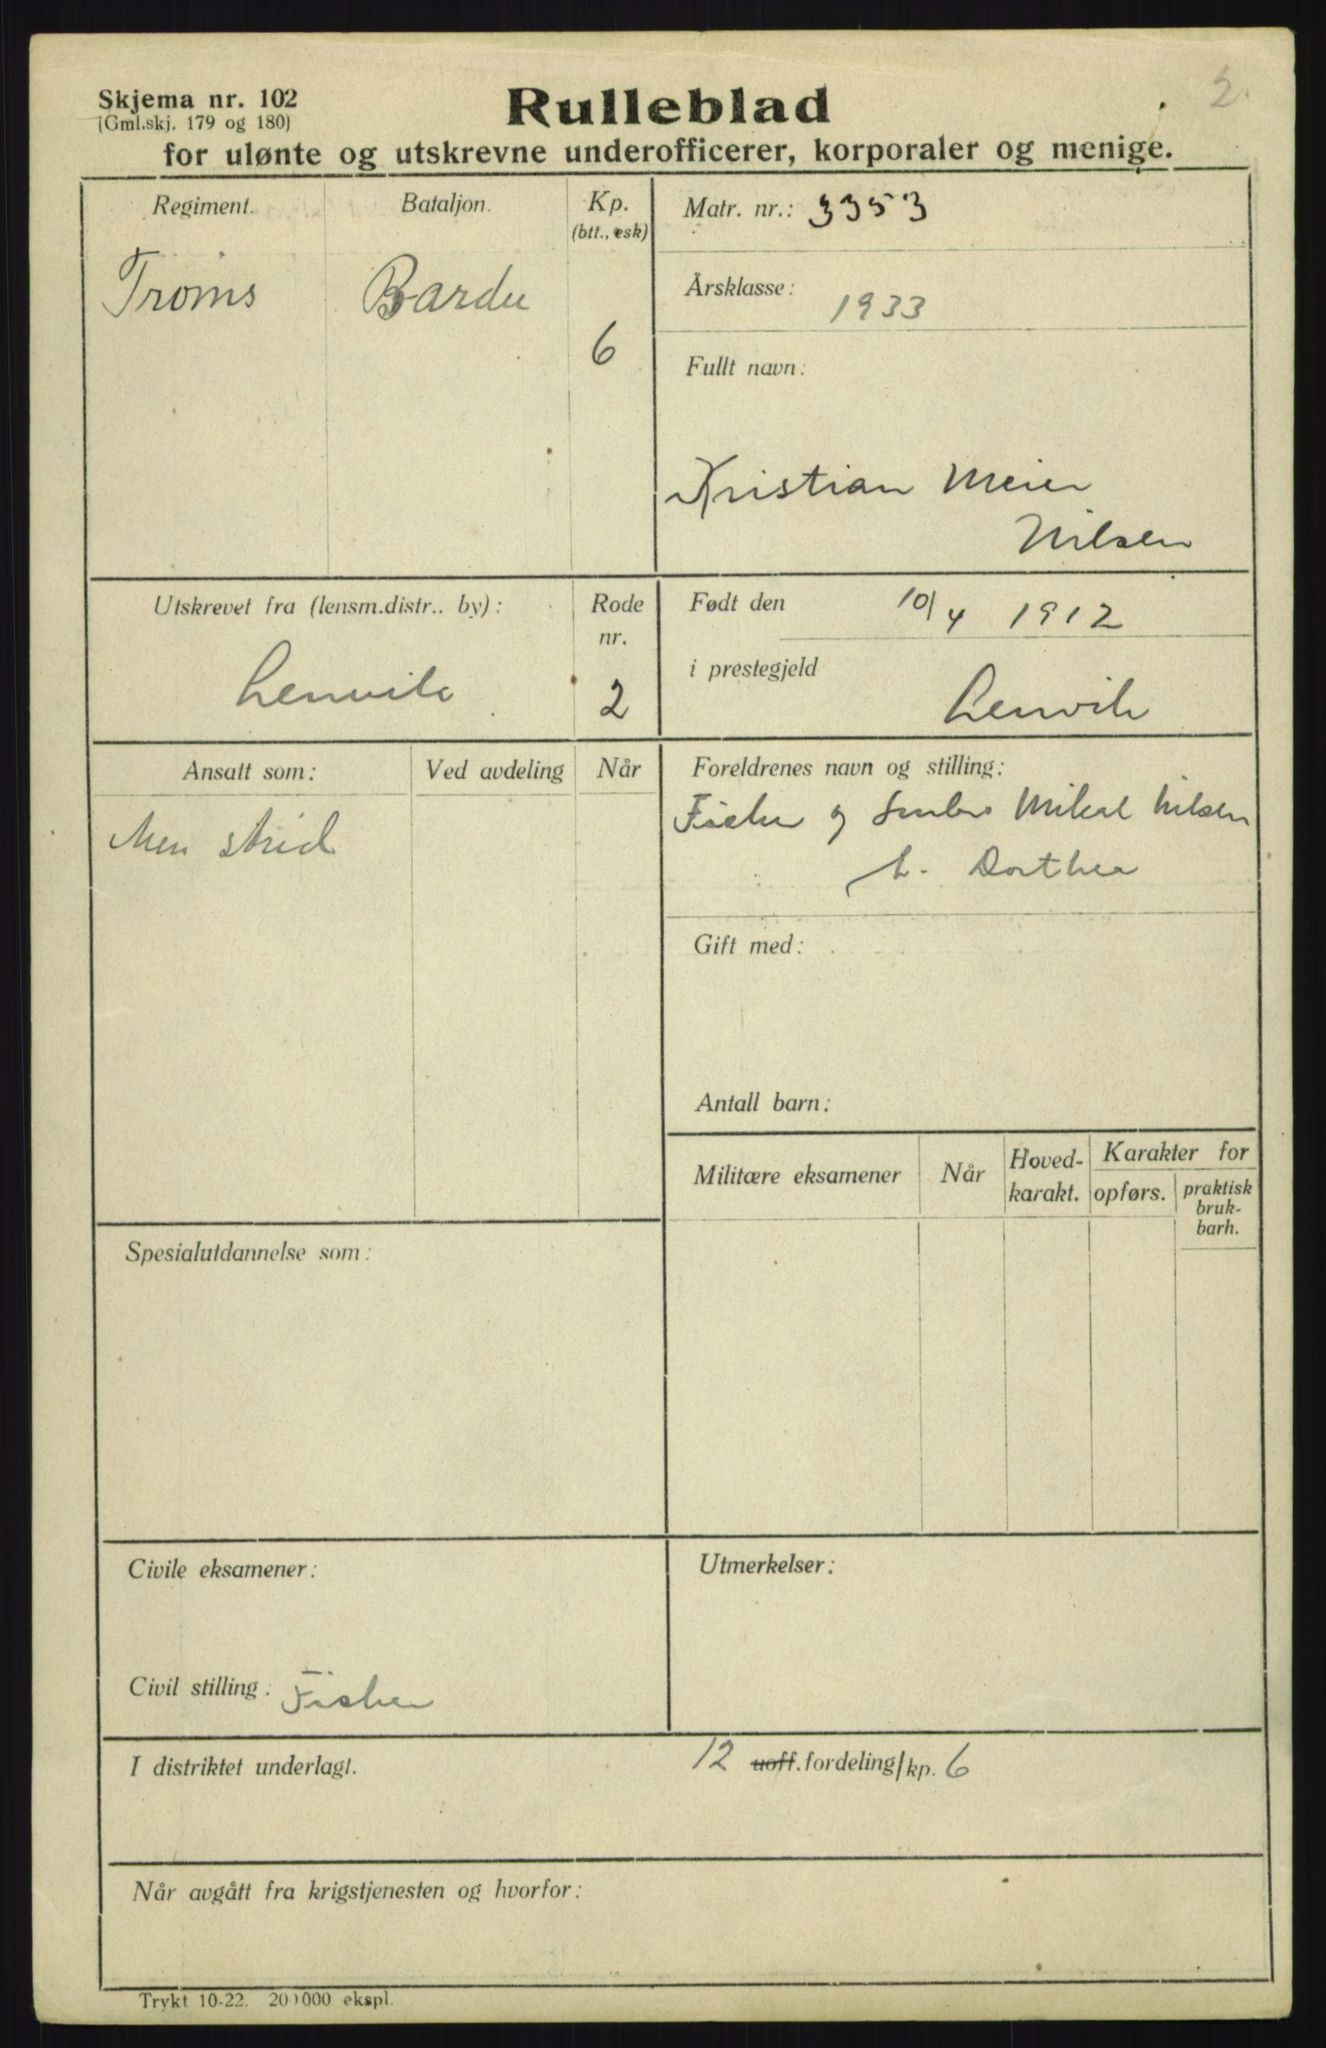 2.
Skjema nr. 102
(Gml.skj. 179 og 180)
Rulleblad
for ulønte og utskrevne underofficerer, korporaler og menige.
Regiment.
Troms
Bataljon.
Bardu
Kp.
(btt., esk)
6
Matr. nr.: 3353
Årsklasse: 1933
Fullt navn:
Kristian Meier
Nilsen
Utskrevet fra (lensm.distr.. by):
Lenvik
Rode
nr.
2
Født den 10/4 1912
i prestegjeld Lenvik
Ansatt som:
Ved avdeling
Når
Men strid
Foreldrenes navn og stilling:
Fisker og Mikal Nilsen
Dorthea
Gift med:
Antall barn:
Militære eksamener
Når
Hoved-
karakt.
Karakter for
opførs.
praktisk
bruk-
barh.
Spesialutdannelse som:
Civile eksamener:
Civil stilling: Fisker
Utmerkelser:
I distriktet underlagt. 12 uoff. fordeling/kp. 6
Når avgått fra krigstjenesten og hvorfor:
Trykt 10-22. 200000 ekspl.